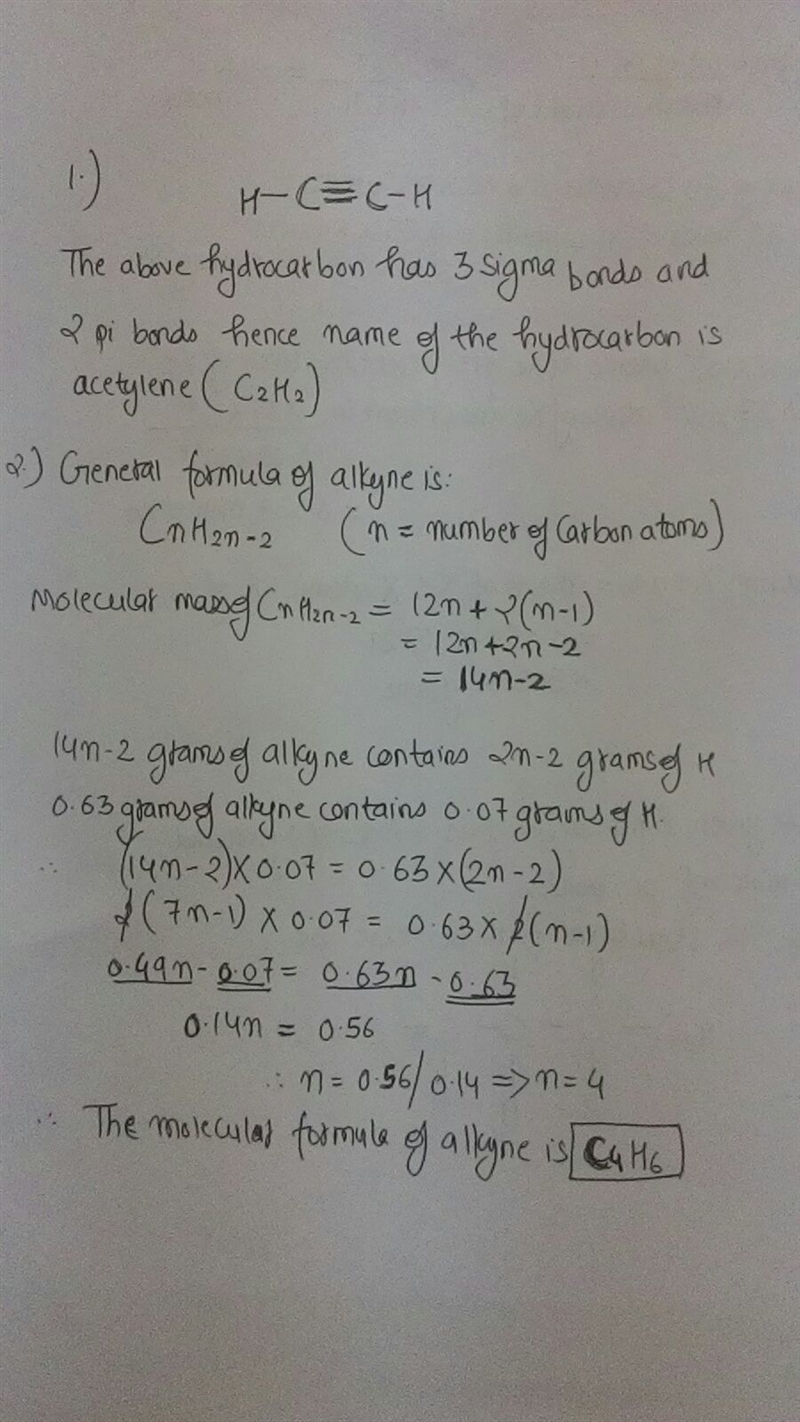 1.)
H-C≡C-H
The above hydrocarbon has 3 sigma bonds and
2 pi bonds hence name of the hydrocarbon is
acetylene (C₂H₂)
2.) General formula of alkyne is:
CnH₂n-₂ (n = number of Carbon atoms)
Molecular mass of CnH₂n-₂ = 12n + 2(n-1)
= 12n+2n-2
= 14n-2
14n-2 grams of alkyne contains 2n-2 grams of H
0.63 grams of alkyne contains 0.07 grams of H.
∴ (14n-2)×0.07 = 0.63×(2n-2)
2(7n-1) × 0.07 = 0.63 × 2(n-1)
0.49n - 0.07 = 0.63n - 0.63
0.14n = 0.56
∴ n = 0.56/0.14 => n = 4
∴ The molecular formula of alkyne is C₄H₆